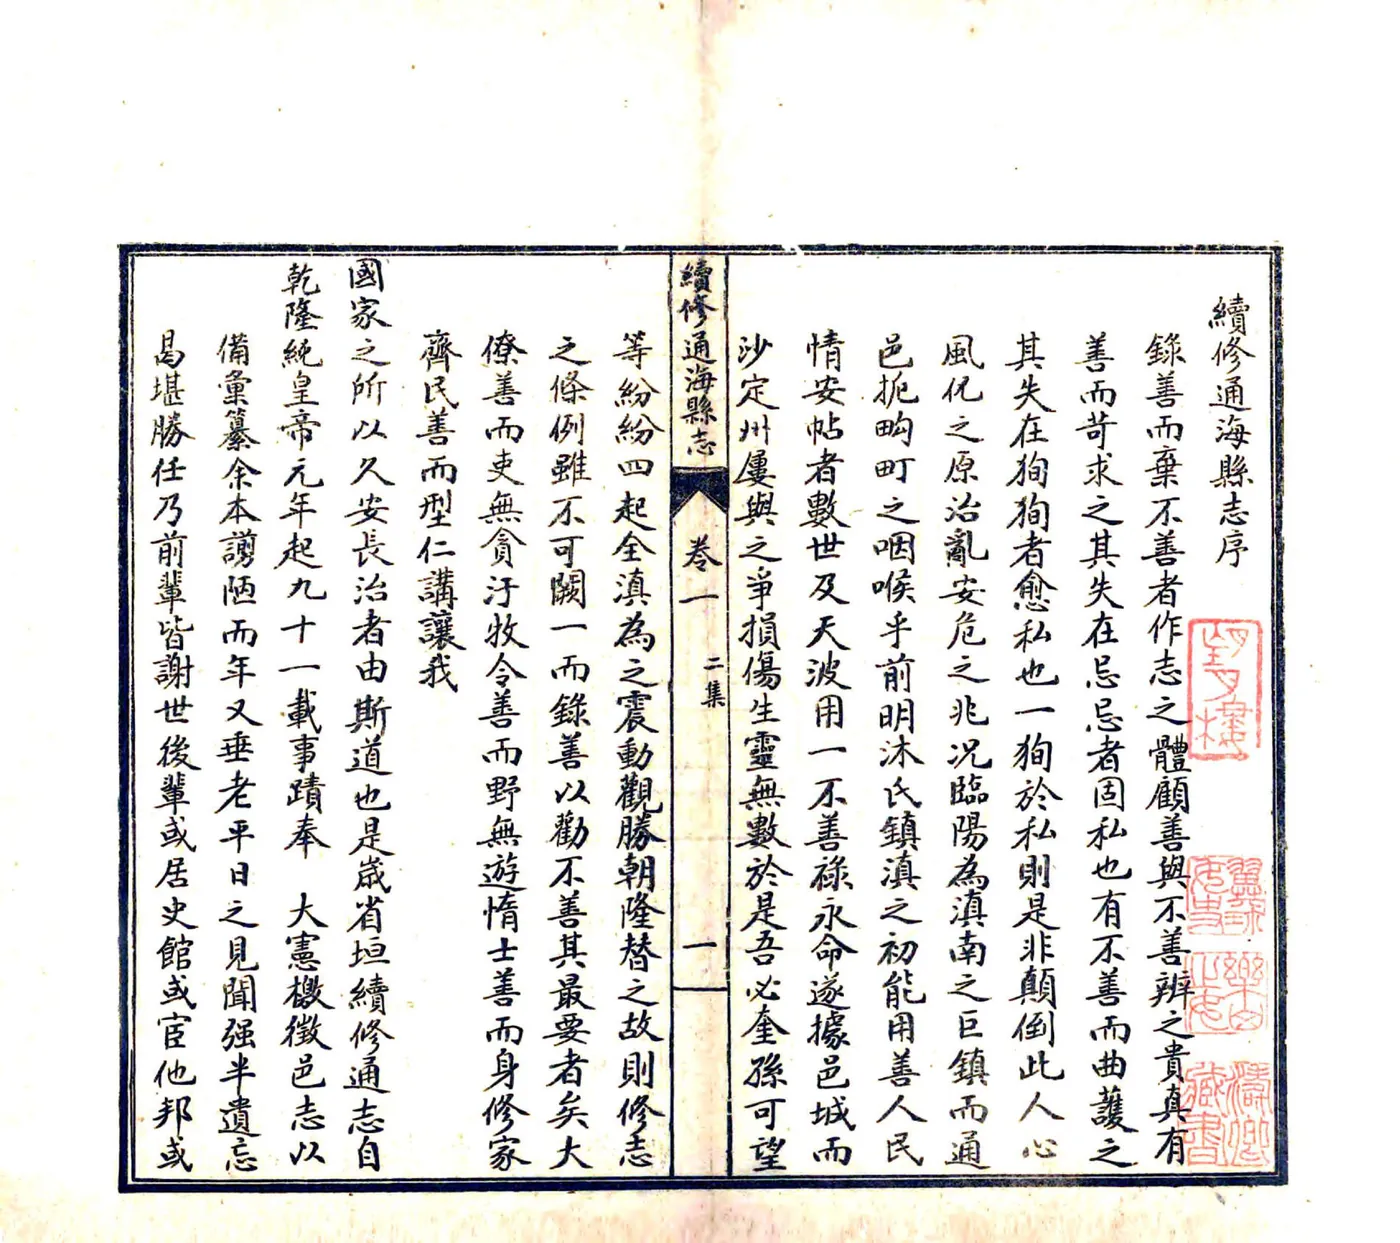 續修通海縣志序
錄善而棄不善者作志之體顧善與不善辨之貴真有
善而苛求之其失在忌忌者固私也有不善而曲護之
其失在狥狥者愈私也一狥於私則是非顛倒此人心
風化之原治亂安危之兆况臨陽為滇南之巨鎮而通
邑扼畇町之咽喉乎前明沐氏鎮滇之初能用善人民
情安帖者數世及天波用一不善祿永命遂據邑城而
沙定州屢與之爭損傷生靈無數於是吾必奎孫可望
續修通海縣志
卷一
二集
一
等紛紛四起全滇為之震動觀勝朝隆替之故則修志
之條例雖不可闕一而錄善以勸不善其最要者矣大
僚善而吏無貪汙牧令善而野無遊惰士善而身修家
齊民善而型仁講讓我
國家之所以久安長治者由斯道也是歲省垣續修通志自
乾隆純皇帝元年起九十一載事蹟奉 大憲檄徵邑志以
備彙纂余本謭陋而年又垂老平日之見聞强半遺忘
曷堪勝任乃前輩皆謝世後輩或居史館或宦他邦或